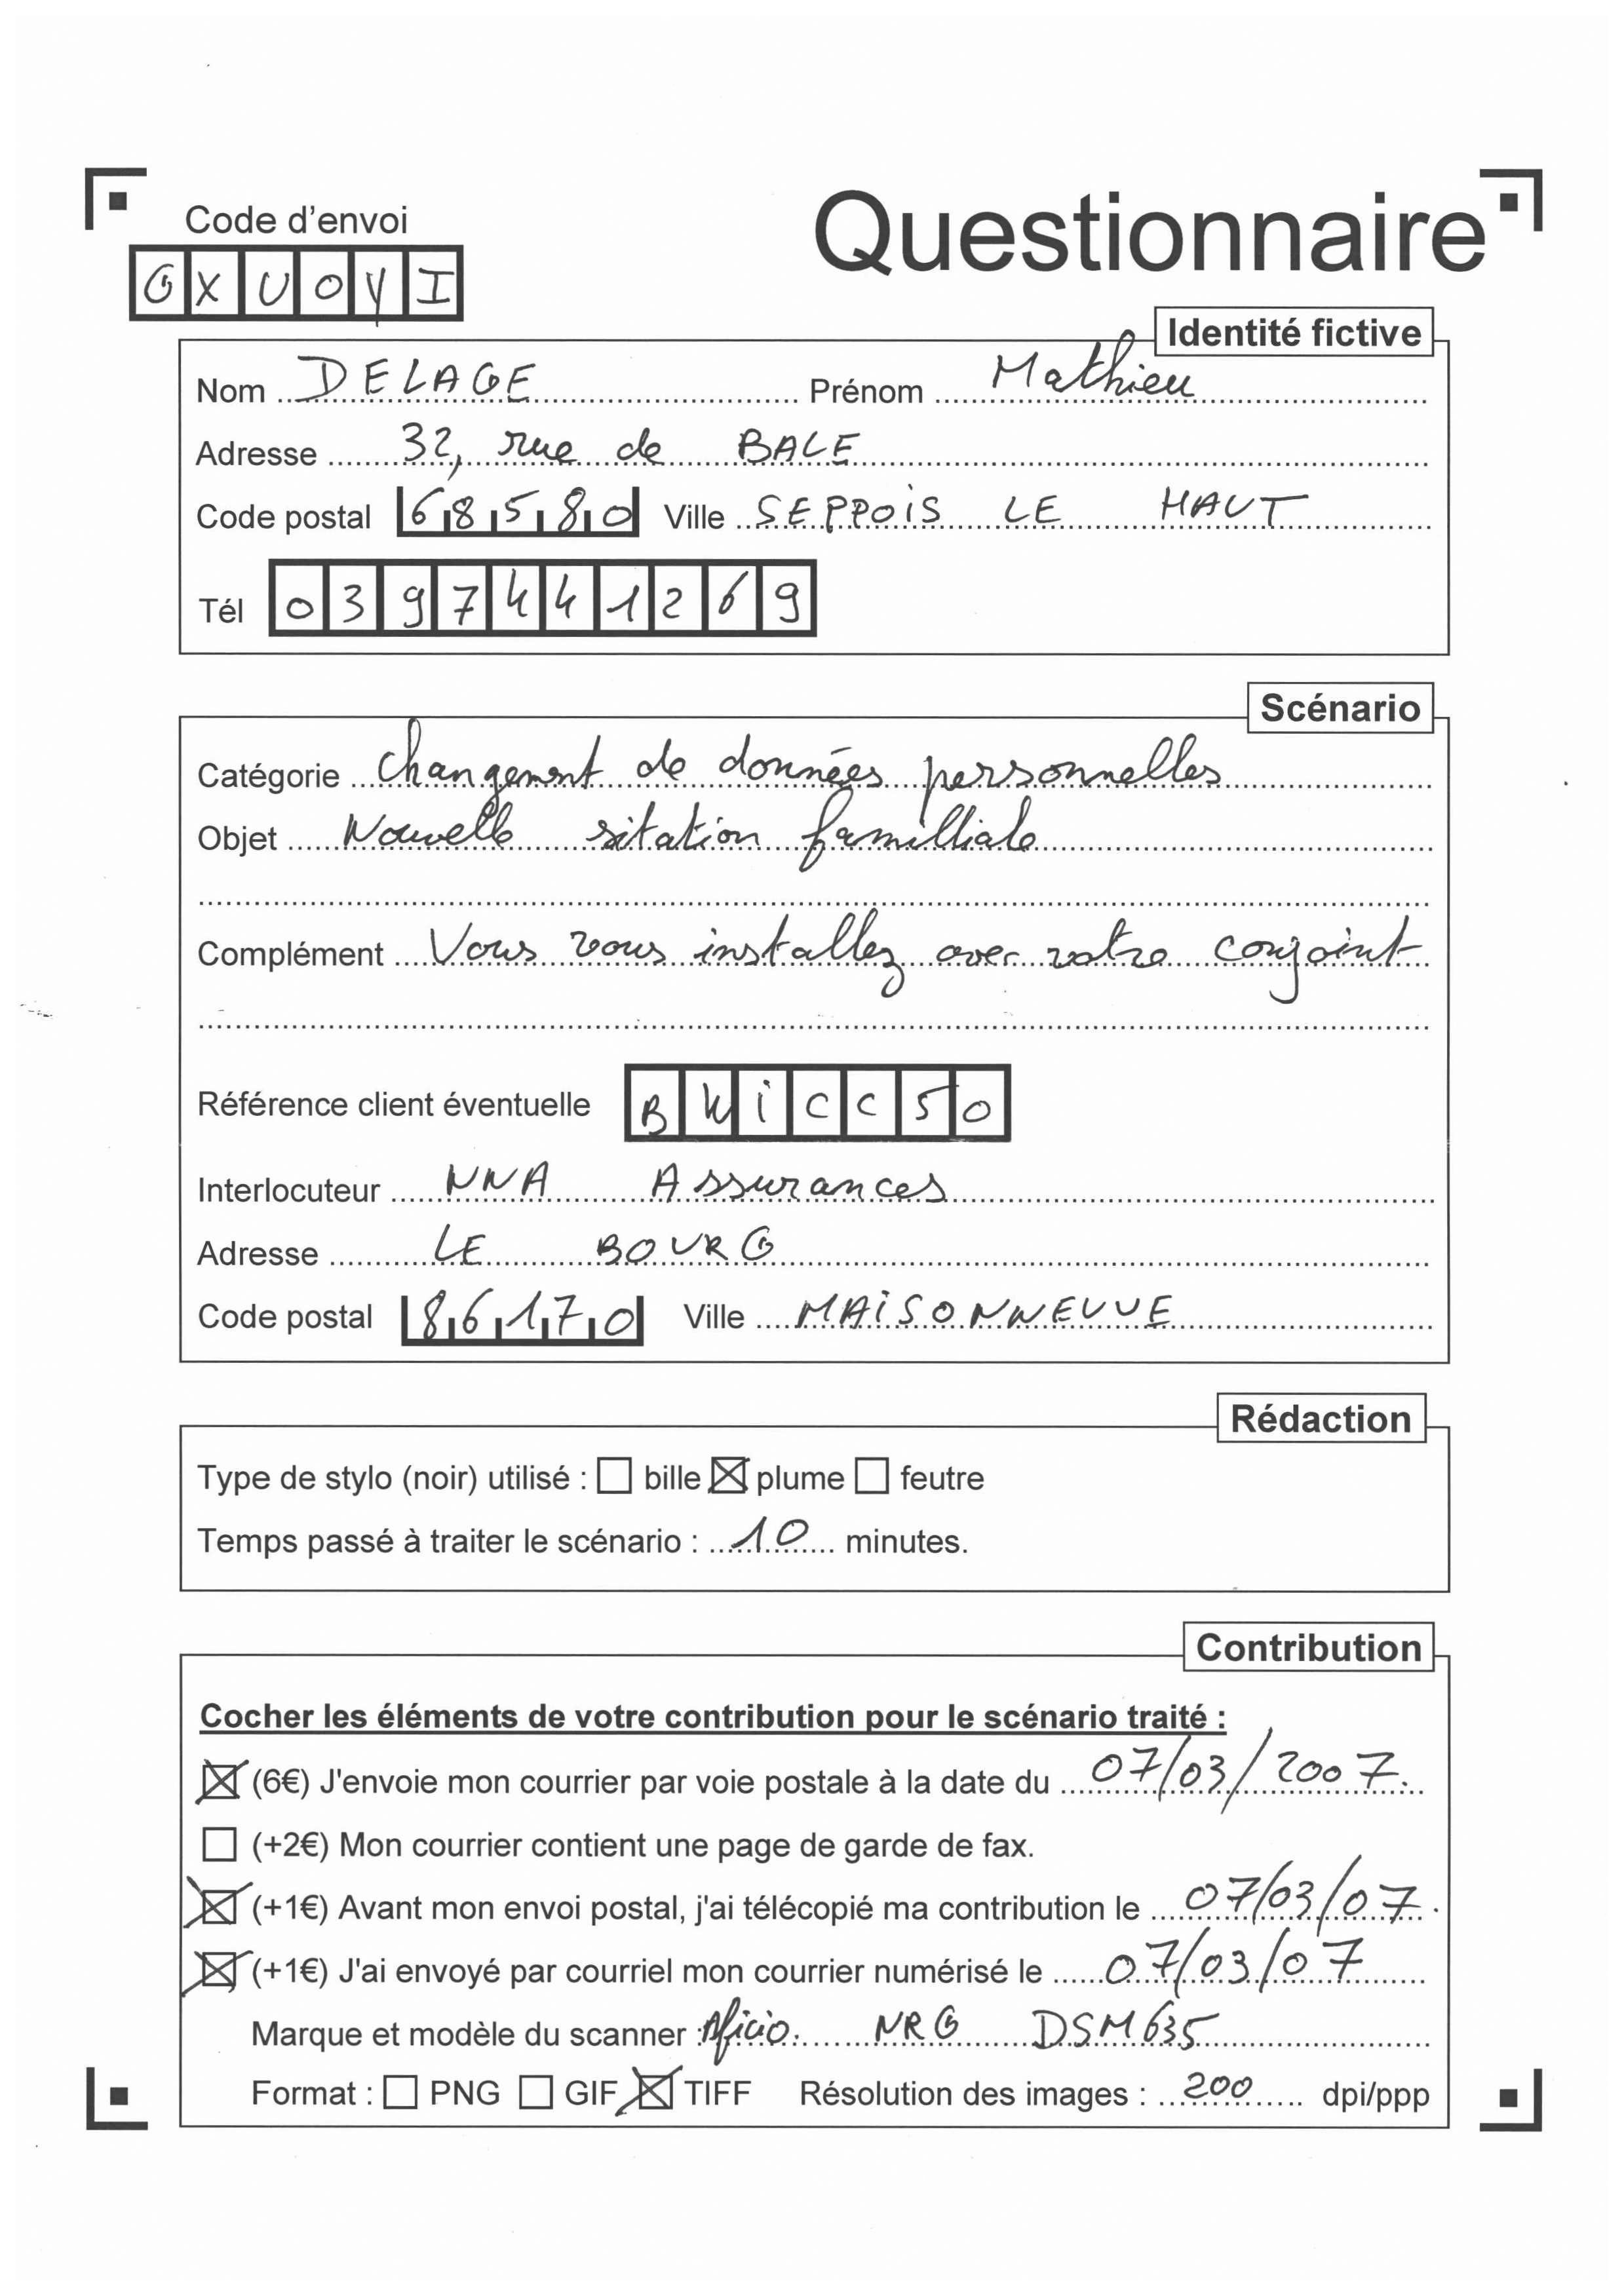 Code d'envoi
Questionnaire
G X U O Y I
Identité fictive
Nom DELAGE Prénom Mathieu
Adresse 32, rue de BALE
Code postal 68580 Ville SEPPOIS LE HAUT
Tél 0397441269
Scénario
Catégorie changement de données personnelles
Objet Nouvelle sitation familliale
Complément Vous vous installez avec votre conjoint
Référence client éventuelle B W i C C 5 0
Interlocuteur NNA Assurances
Adresse LE BOURG
Code postal 86170 Ville MAISONNEUVE
Rédaction
Type de stylo (noir) utilisé : ☐ bille ☒ plume ☐ feutre
Temps passé à traiter le scénario : 10 minutes.
Contribution
Cocher les éléments de votre contribution pour le scénario traité :
☒ (6€) J'envoie mon courrier par voie postale à la date du 07/03/2007.
☐ (+2€) Mon courrier contient une page de garde de fax.
☒ (+1€) Avant mon envoi postal, j'ai télécopié ma contribution le 07/03/07.
☒ (+1€) J'ai envoyé par courriel mon courrier numérisé le 07/03/07
Marque et modèle du scanner : Aficio. NRG DSM635
Format : ☐ PNG ☐ GIF ☒ TIFF Résolution des images : 200 dpi/ppp